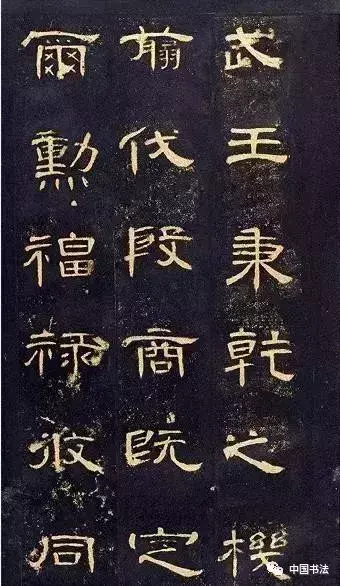 武王秉乾之機
翦伐殷商既定
爾勳福祿攸同
中国书法